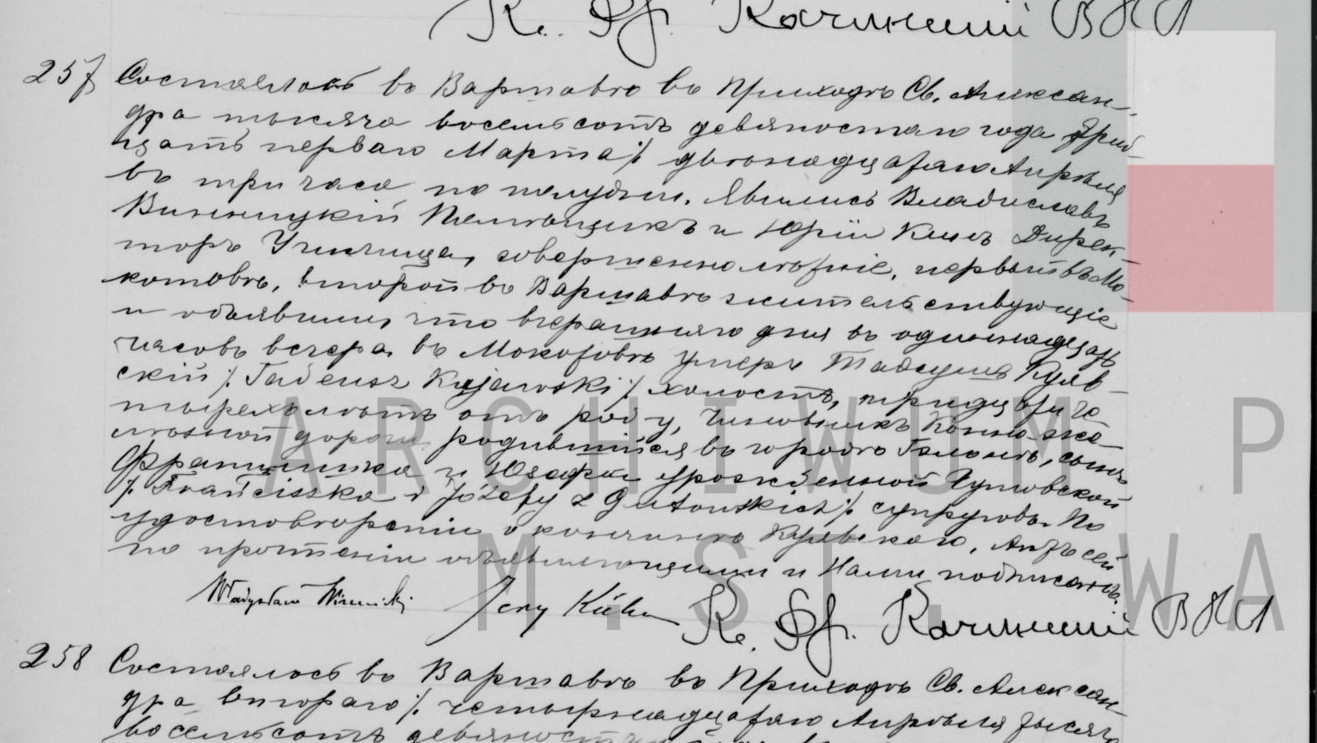 Кс. Фр. Качинский ВНА
257 Состоялось въ Варшавѣ въ Приходѣ Св. Алексан-
дра тысяча восемьсотъ девяностаго года Трид-
цать перваго Марта /: двѣнадцатаго Апрѣля
въ три часа по полудни. Явились Владиславъ
Винницкій Помѣщикъ и Юрій Директ-
торъ Училища, совершеннолѣтніе, первый въ Мо-
котовѣ, второй въ Варшавѣ жительствующіе
и объявили, что вчерашняго дня въ одиннадцать
часовъ вечера, въ Мокотовѣ умеръ Тадеушъ
скій /: Tadeusz Kujawski /: холостъ, тридцати че-
тырехъ лѣтъ отъ роду, Чиновникъ Конно-же-
лѣзной дороги родившійся въ городѣ сынъ
Францишка и Юзефы урожденной Гутовской
/: Franciszka i Józefy z Gutowskich /: супруговъ. По
удостовѣреніи о кончинѣ Актъ сей
по прочтеніи объявляющими и Нами подписанъ.
Władysław Jerzy Кс. Фр. Качинский ВНА
258 Состоялось въ Варшавѣ въ Приходѣ Св. Алексан-
дра втораго /: четырнадцатаго Апрѣля тысяча
восемьсотъ
ARCHIWUM P
M. ST. WA